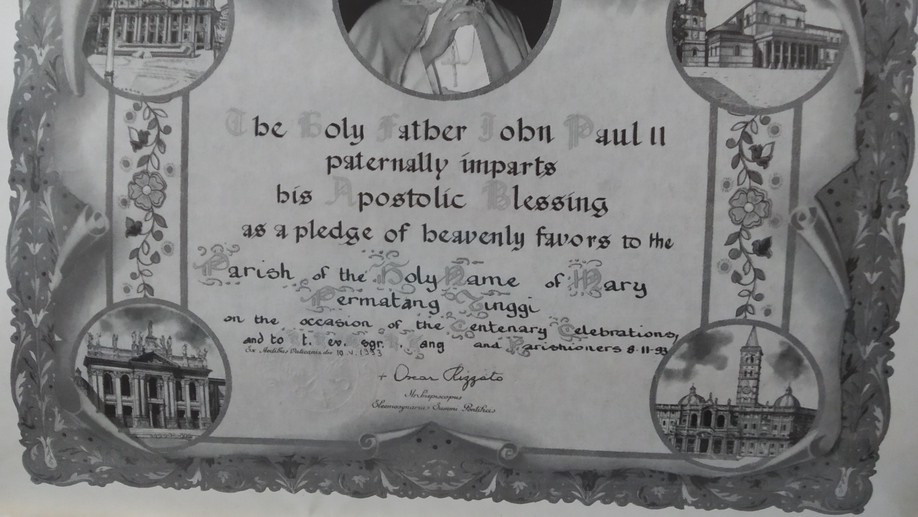 The Holy Father John Paul II
paternally imparts
his Apostolic Blessing
as a pledge of heavenly favors to the
Parish of the Holy Name of Mary
Permatang Tinggi
on the occasion of the Centenary Celebrations,
and to Rt. Rev. Msgr. Pang and Parishioners 8-11-93
Ex Aedibus Vaticanis die 10.4.1993
+ Oscar Rizzato
Archiepiscopus
Eleemosynarius Summi Pontificis